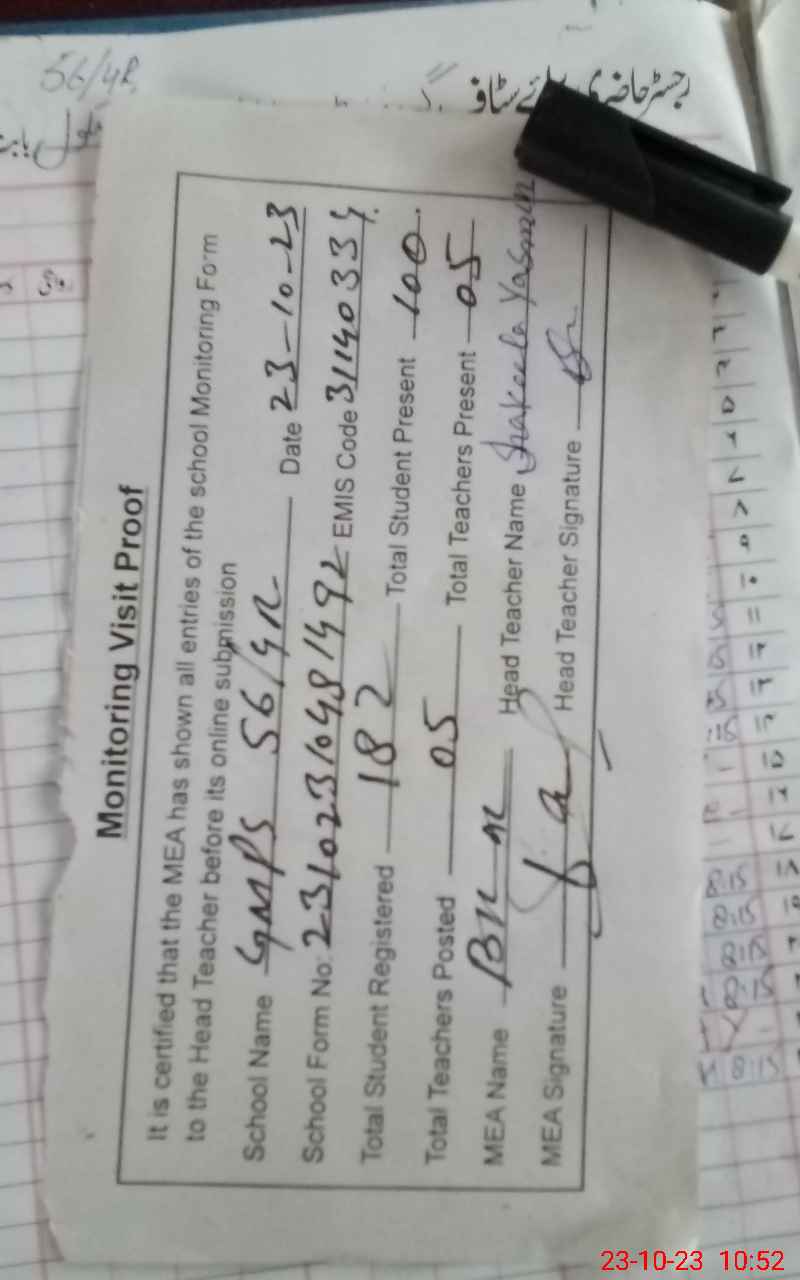 56/4R
رجسٹر حاضری برائے سٹاف
Monitoring Visit Proof
It is certified that the MEA has shown all entries of the school Monitoring Form
to the Head Teacher before its online submission
School Name GMPS 56/4R Date 23-10-23
School Form No: 231023104981492 EMIS Code 31140334
Total Student Registered 182 Total Student Present 100
Total Teachers Posted 05 Total Teachers Present 05
MEA Name Head Teacher Name Shakeela Yasmin
MEA Signature Head Teacher Signature
8:15
8:15
8:15
8:15
8:15
23-10-23 10:52